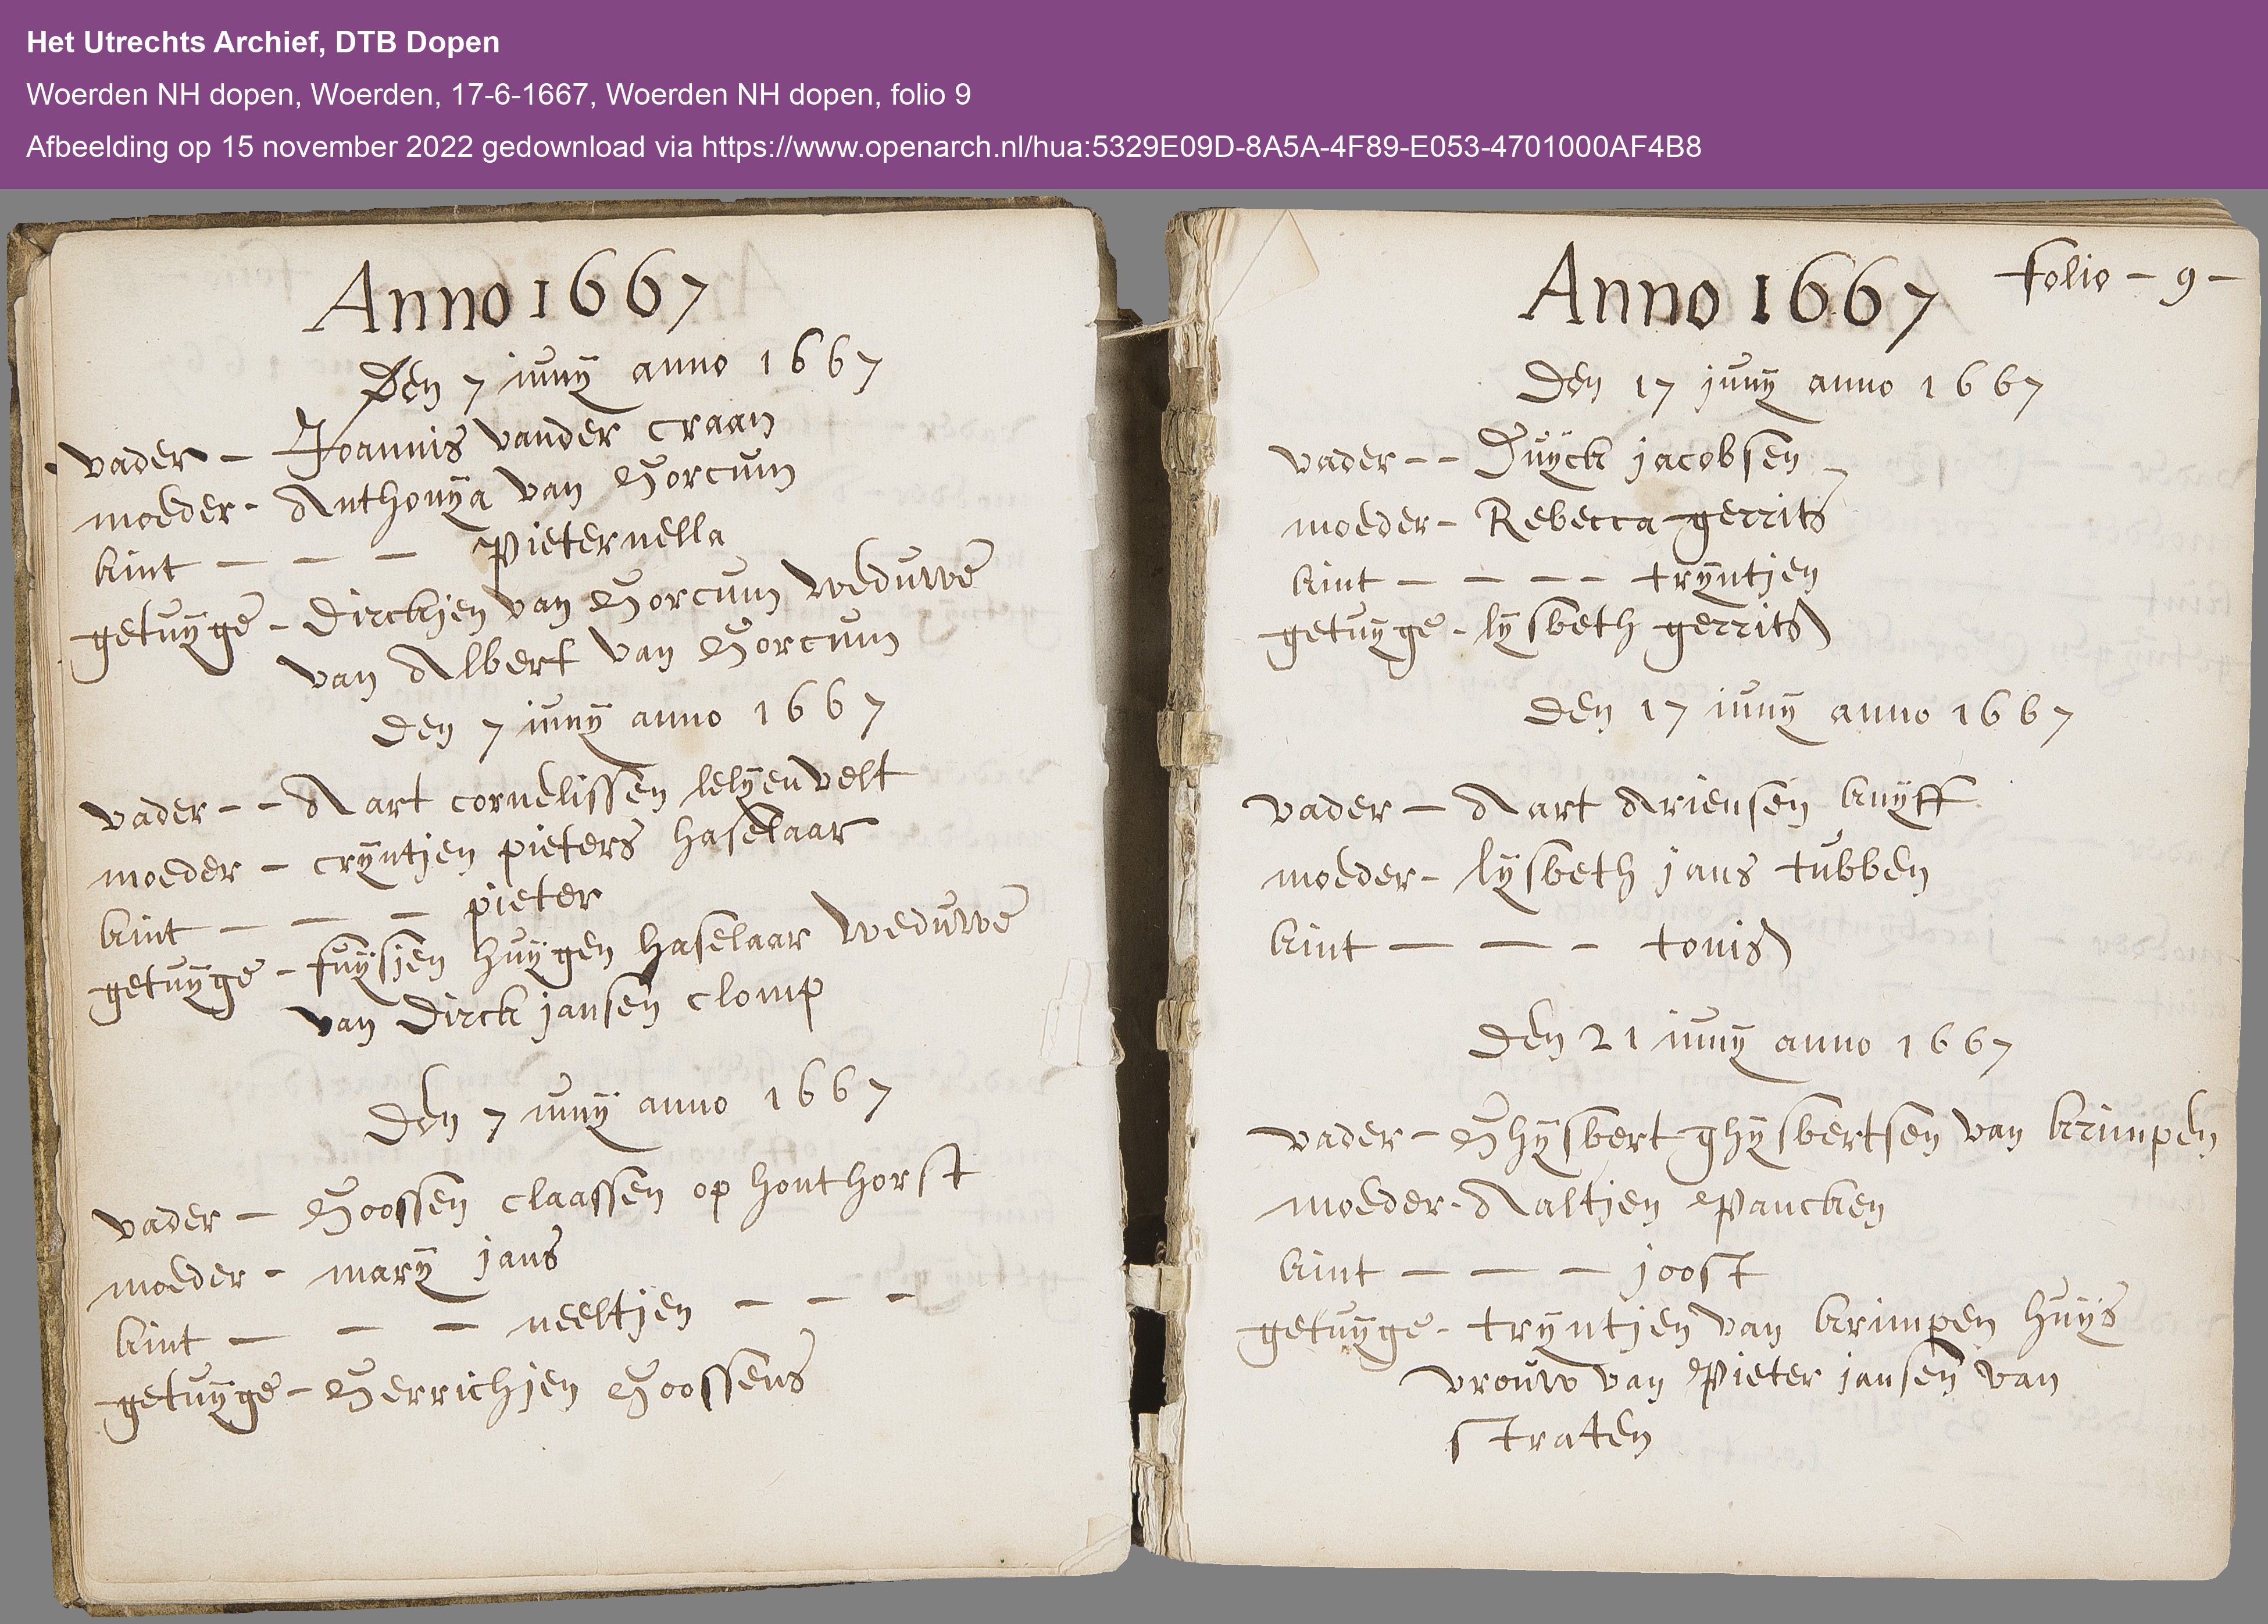 Het Utrechts Archief, DTB Dopen
Woerden NH dopen, Woerden, 17-6-1667, Woerden NH dopen, folio 9
Afbeelding op 15 november 2022 gedownload via https://www.openarch.nl/hua:5329E09D-8A5A-4F89-E053-4701000AF4B8
Anno 1667
Den 7 iunij anno 1667
vader - Joannis vander craan
moeder - Anthonÿa van Gorcum
kint - - - Pieternella
getuÿge - Dirckjen van Gorcum weduwe
van Albert van Gorcum
den 7 iunij anno 1667
vader - - Aart cornelissen lelÿenvelt
moeder - crÿntjen pieters haselaar
kint - - - pieter
getuÿge - fuÿsjen huÿgen haselaar weduwe
van Dirck jansen clomp
den 7 iunij anno 1667
vader - Goossen claassen op honthorst
moeder - marÿ jans
kint - - - neeltjen - - -
getuÿge - Gerrichjen Goossens
Anno 1667
folio - 9 -
Den 17 junij anno 1667
vader - - Duÿck jacobsen
moeder - Rebecca gerrits
kint - - - - trÿntjen
getuÿge - lÿsbeth gerrits
den 17 iunij anno 1667
vader - Aart Ariensen kuÿff
moeder - lÿsbeth jans tubben
kint - - - tonis
den 21 iunij anno 1667
vader - Ghÿsbert ghÿsbertsen van krimpen
moeder - Aaltjen Pancken
kint - - - joost
getuÿge - trÿntjen van krimpen huÿs
vrouw van Pieter jansen van
straten